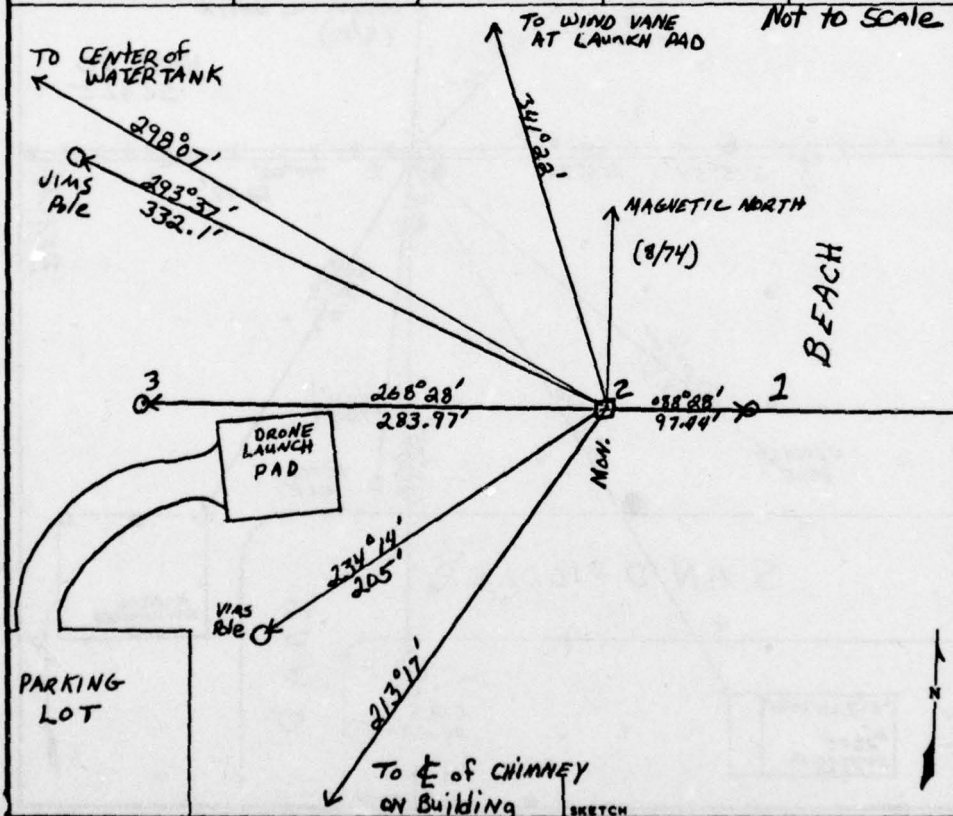 Not to Scale
TO WIND VANE
AT LAUNCH PAD
TO CENTER of
WATERTANK
298°07'
341°28'
VIMS
Pole
293°37'
332.1'
MAGNETIC NORTH
(8/74)
BEACH
3
268°28'
283.97'
2
088°28'
97.44'
1
DRONE
LAUNCH
PAD
MON.
234°14'
205'
VIMS
Pole
213°17'
PARKING
LOT
N
TO ℄ of CHIMNEY
ON Building
SKETCH